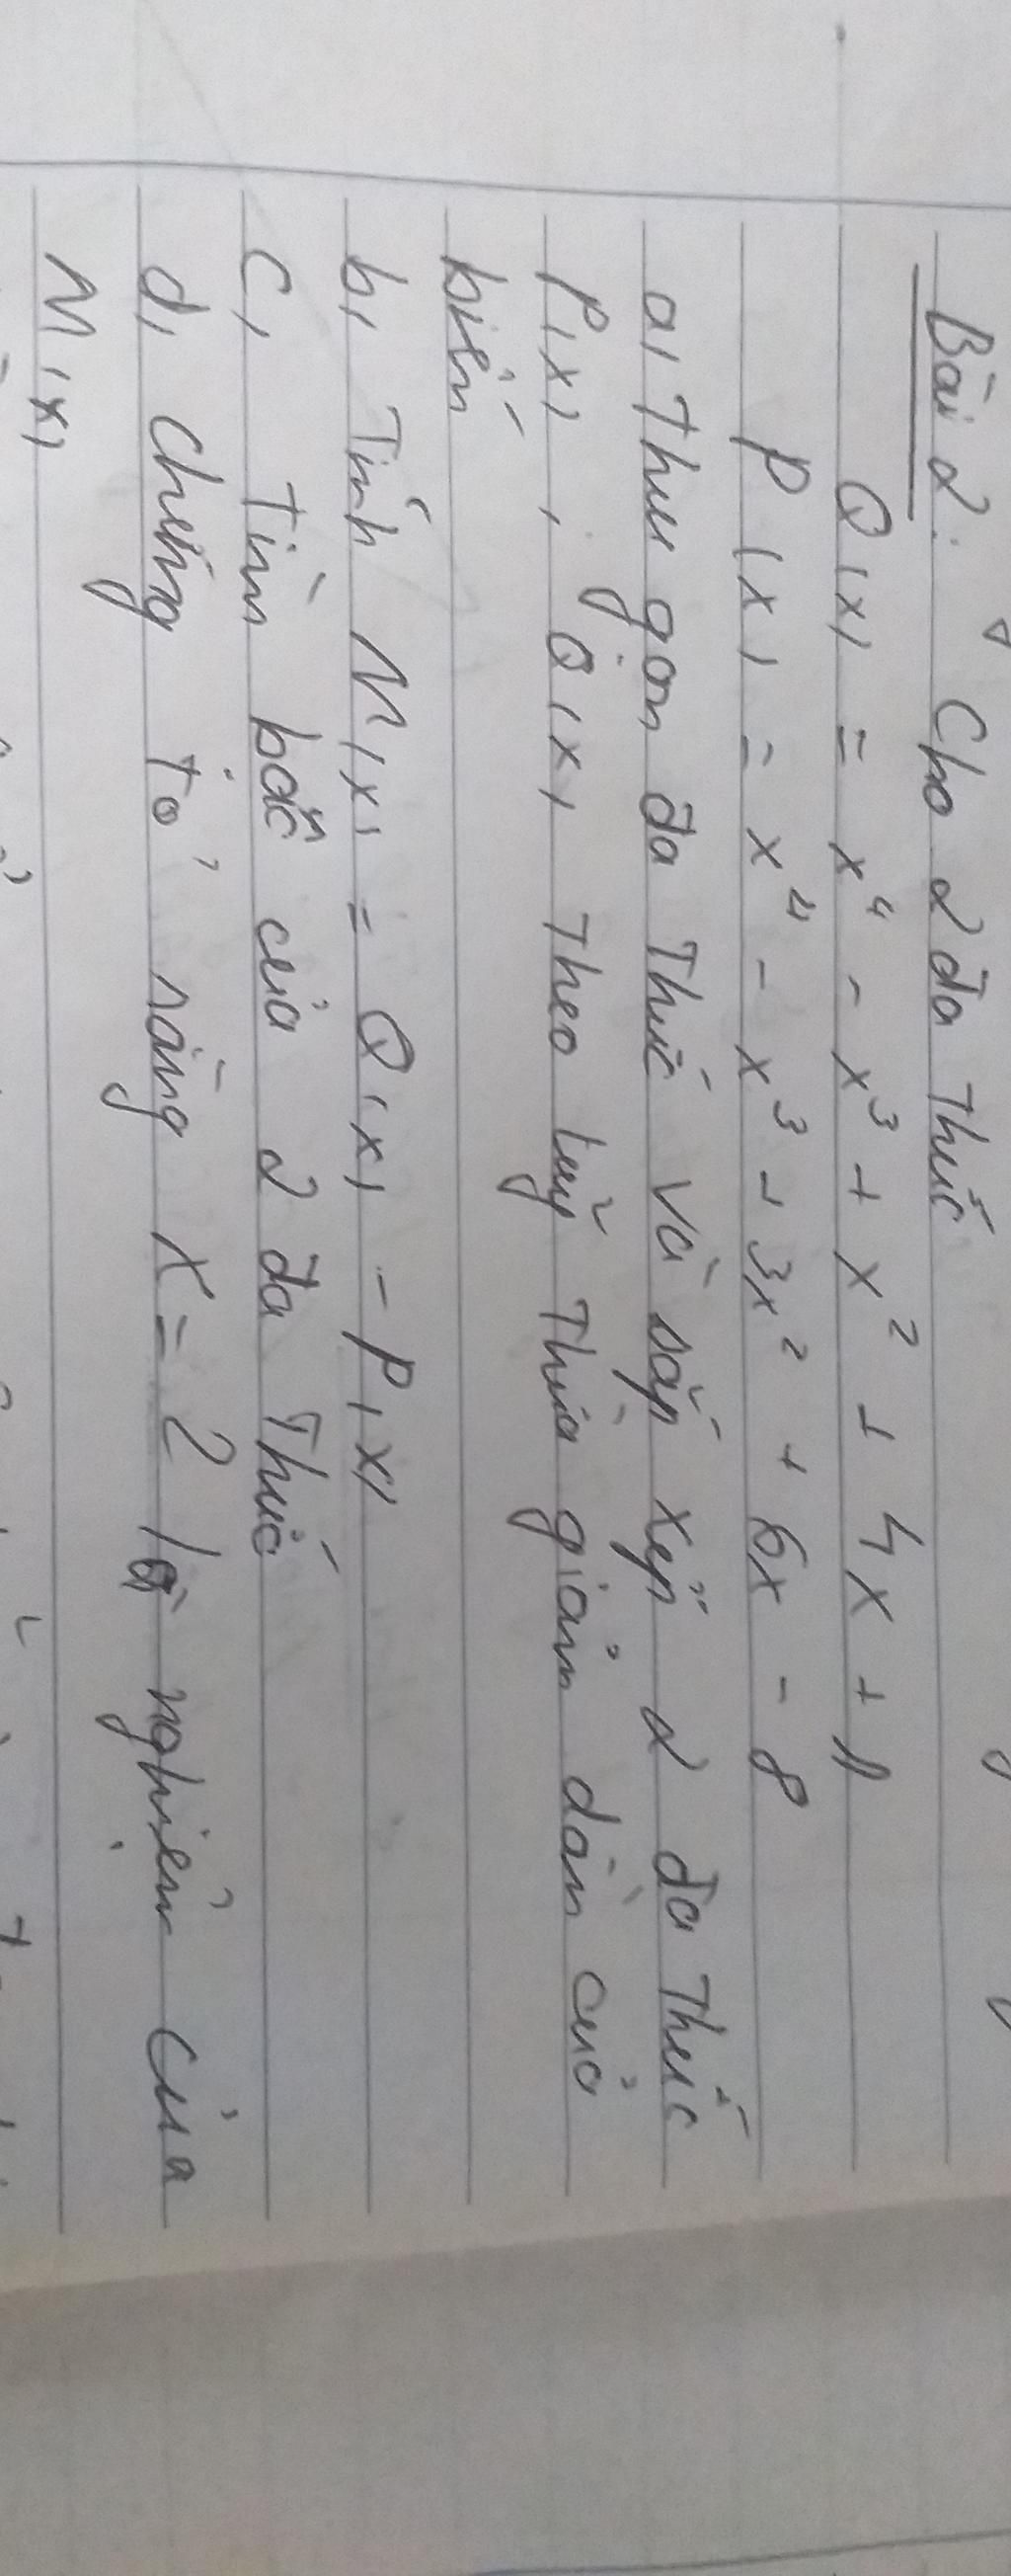 Bài 2: Cho 2 đa thức
Q(x) = x⁴ - x³ + x² + 4x + 1
P(x) = x⁴ - x³ + 3x² + 6x - 8
a, Thu gọn đa thức và sắp xếp 2 đa thức
P(x), Q(x) theo luỹ thừa giảm dần của
biến
b, Tính M(x) = Q(x) - P(x)
c, Tìm bậc của 2 đa thức
d, chứng tỏ rằng x = 2 là nghiệm của
M(x)